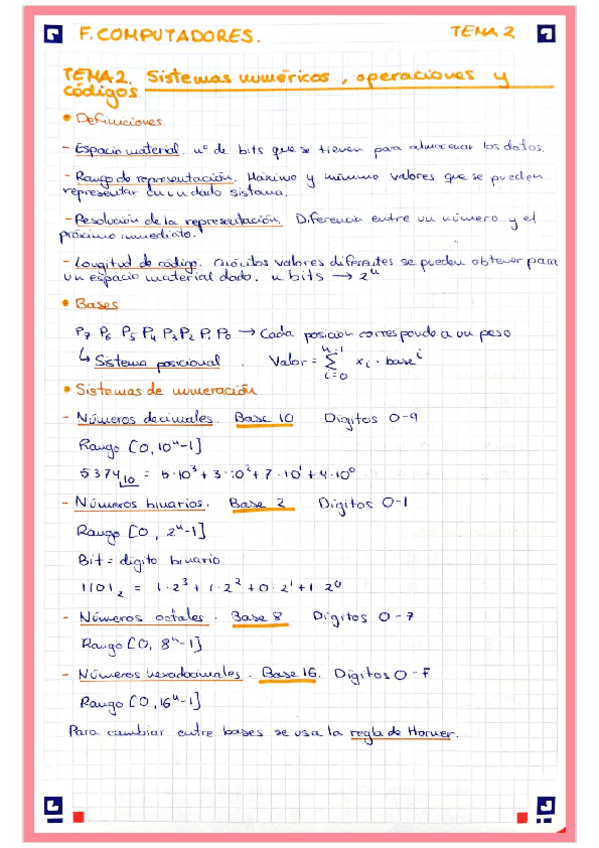 F. COMPUTADORES.
TEMA 2
TEMA 2. Sistemas numéricos, operaciones y
códigos
• Definiciones
- Espacio material. nº de bits que se tienen para almacenar los datos.
- Rango de representación. Máximo y mínimo valores que se pueden
representar en un dado sistema.
- Resolución de la representación. Diferencia entre un número y el
próximo inmediato.
- Longitud de código. Cuántos valores diferentes se pueden obtener para
un espacio material dado. n bits → 2ⁿ
• Bases
P₇ P₆ P₅ P₄ P₃ P₂ P₁ P₀ → Cada posición corresponde a un peso
↳ Sistema posicional. Valor = ∑ⁿ⁻¹ᵢ₌₀ xᵢ · baseⁱ
• Sistemas de numeración
- Números decimales. Base 10 Dígitos 0-9
Rango [0, 10ⁿ-1]
5374₁₀ = 5·10³ + 3·10² + 7·10¹ + 4·10⁰
- Números binarios. Base 2 Dígitos 0-1
Rango [0, 2ⁿ-1]
Bit = dígito binario
1101₂ = 1·2³ + 1·2² + 0·2¹ + 1 2⁰
- Números octales. Base 8 Dígitos 0-7
Rango [0, 8ⁿ-1]
- Números hexadecimales. Base 16. Dígitos 0-F
Rango [0, 16ⁿ-1]
Para cambiar entre bases se usa la regla de Horner.